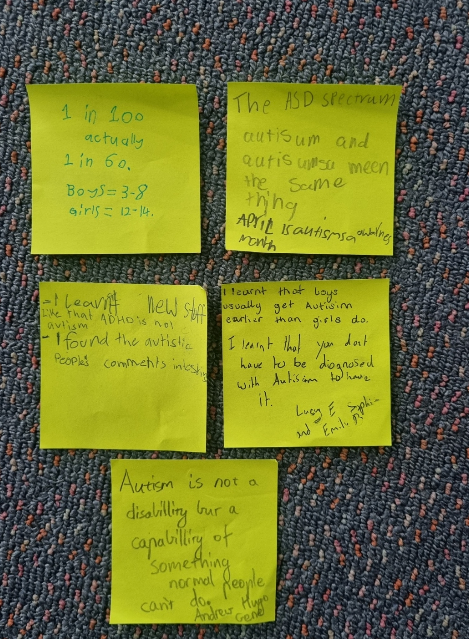 1 in 100
actually
1 in 60.
Boys = 3-8
Girls = 12-14.
The ASD spectrum
autisum and
autisumsa meen
the same
thing
APRIL is autismsa
month
- I learnt new stuff
like that ADHD is not
autism
- I found the autistic
People's comments
I learnt that boys
usually get Autisim
earlier than girls do.
I learnt that you dont
have to be diagnosed
with Autisam to have
it.
Lucy E
and Emili
Autism is not a
disabillity bur a
capabillity of
something
normal people
can't do.
Andrew Hugo